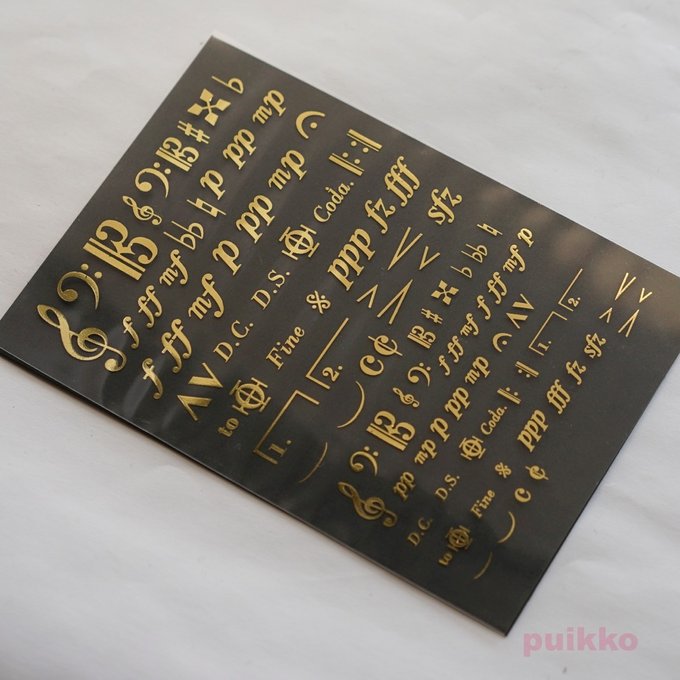 f ff mf p pp mp
f ff mf p pp mp
D.C. D.S. Coda.
to Fine ppp fz fff
1. 2. sfz
f ff mf f ff mf p
pp mp p pp mp
D.C. D.S. Coda. 1. 2.
to Fine ppp fff fz sfz
puikko